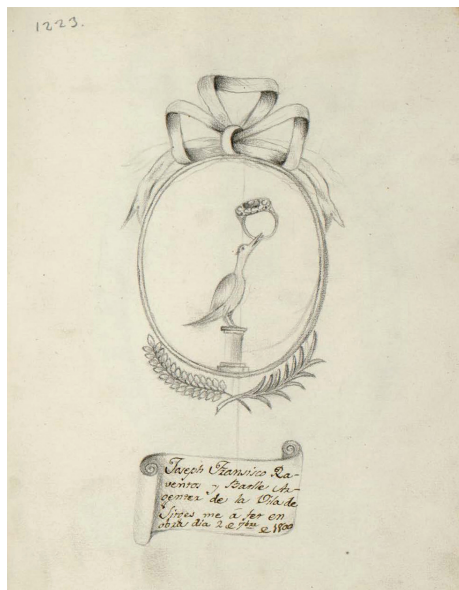 1223.
Joseph Fransisco Ra-
ventos y Batlle Ar-
genter de la Vila de
Sitges me á fet en
obra dia 2 de 7bre de 1800